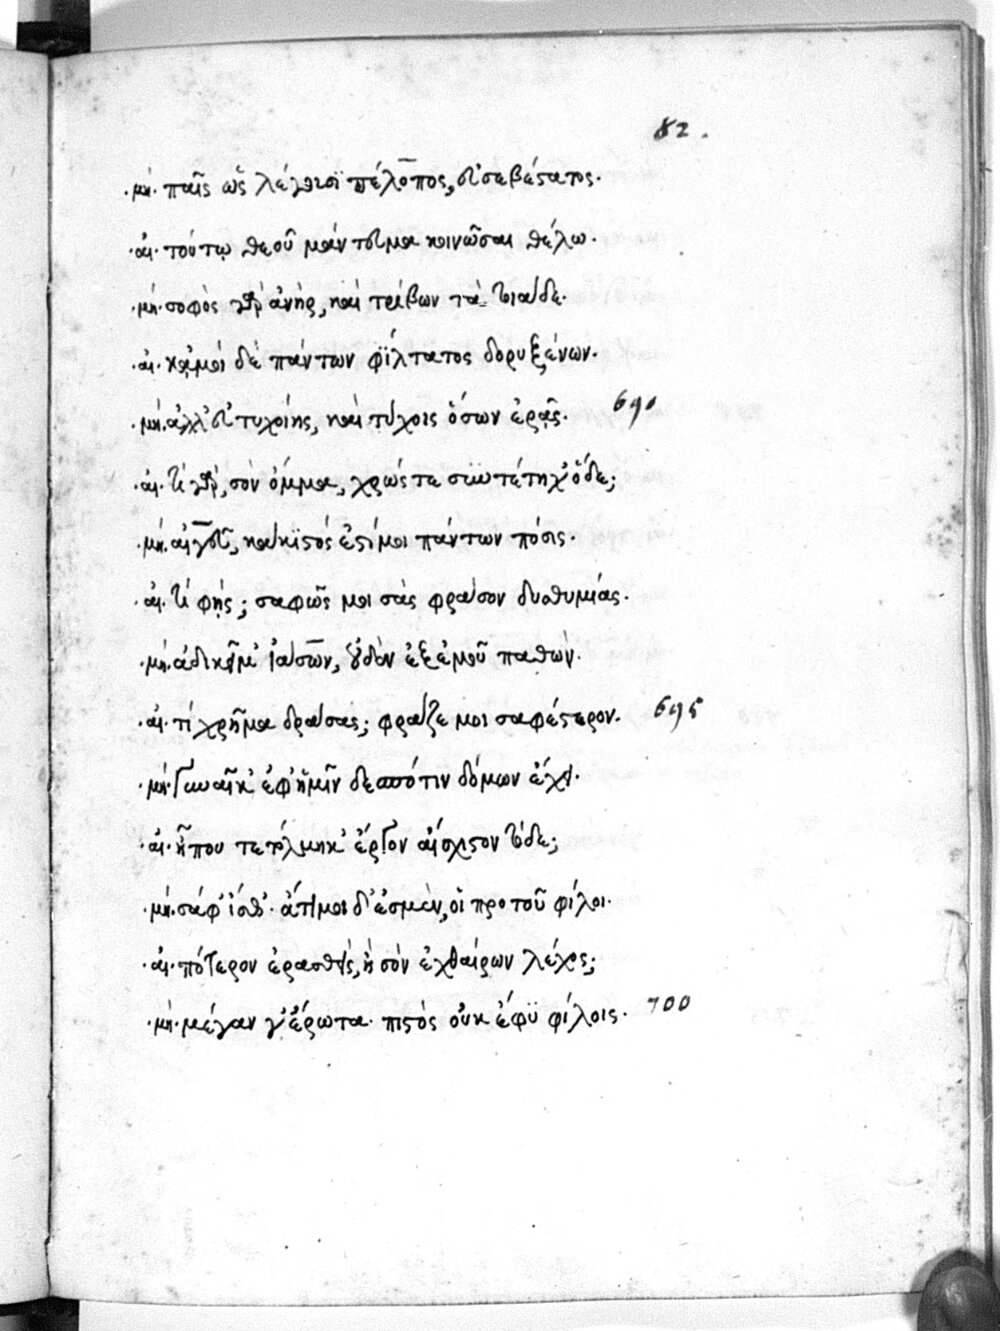 82.
·μη· παῖς ὡς λέγουσϊ πέλοπος, εὐσεβέστατος·
·αἰ· τούτῳ θεοῦ μάντευμα κοινῶσαι θέλω·
·μη· σοφὸς γὰρ ἀνὴρ, καὶ τρίβων τὰ τοιάδε·
·αἰ· κᾀμοὶ δὲ πάντων φΐλτατος δορυξένων·
·μη· ἀλλ' εὐτυχοίης, καὶ τύχοις ὅσων ἐρᾷς· 690
·αἰ· τί γὰρ, σὸν ὄμμα, χρώς τε συντέτηχ' ὅδε;
·μη· αἰγεῦ, κάκϊστός ἐστί μοι πάντων πόσις·
·αἰ· τί φῄς; σαφῶς μοι σὰς φράσον δυσθυμίας·
·μη· ἀδικεῖ μ' ἰάσων, οὐδὲν ἐξ ἐμοῦ παθών·
·αἰ· τί χρῆμα δράσας; φράζε μοι σαφέστερον· 695
·μη· Γυναῖκ' ἐφ' ἡμῖν δεσπότιν δόμων ἔχει·
·αἰ· ἦ που τετόλμηκ' ἔργον αἴσχιστον τόδε;
·μη· σάφ' ἴσθ'· ἄτιμοι δ' ἐσμὲν, οἱ προτοῦ φίλοι·
·αἰ· πότερον ἐρασθεὶς, ἢ σὸν ἐχθαίρων λέχος;
·μη· μέγαν γ' ἔρωτα· πιστὸς οὐκ ἔφϋ φίλοις· 700